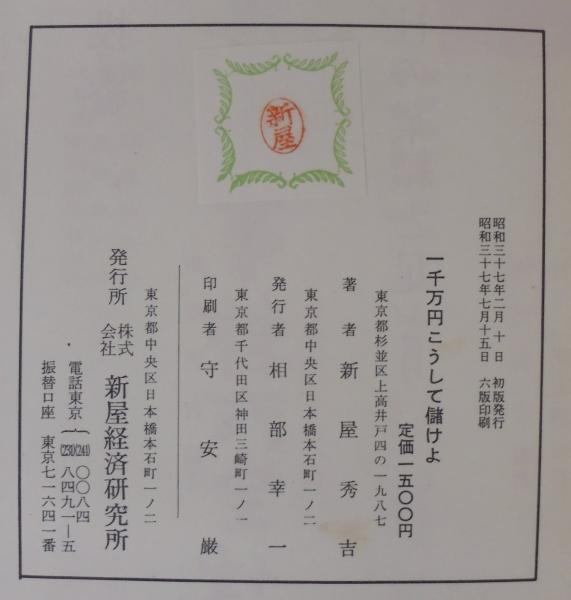 昭和三十七年二月 十 日 初版発行
昭和三十七年七月十五日 六版印刷
一千万円こうして儲けよ
定価一五〇〇円
東京都杉並区上高井戸四の一九八七
著者 新屋秀吉
東京都中央区日本橋本石町一ノ二
発行者 相部幸一
東京都千代田区神田三崎町一ノ一
印刷者 守安巌
東京都中央区日本橋本石町一ノ二
発行所 株式会社 新屋経済研究所
電話東京 (241) 〇〇八四
(230) 八四九一―五
振替口座 東京七一六四一番
新屋